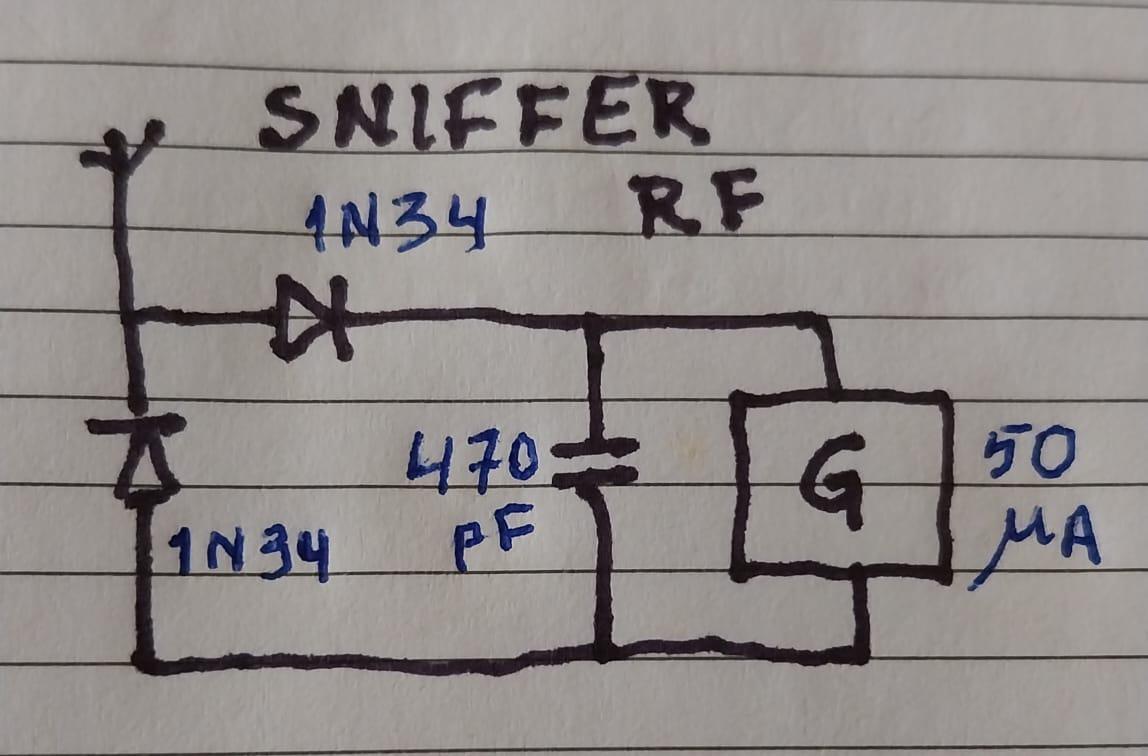 SNIFFER
RF
1N34
470
pF
1N34
G
50
µA